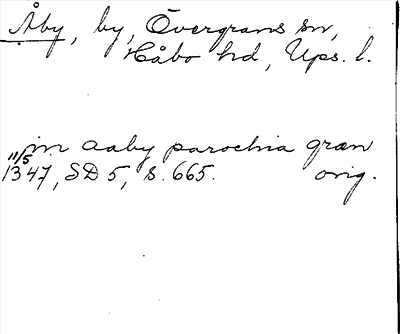 Åby, by, Övergrans sn,
Håbo hd, Ups. l.
in aaby parochia græn
11/5 1347, SD 5, s. 665. orig.